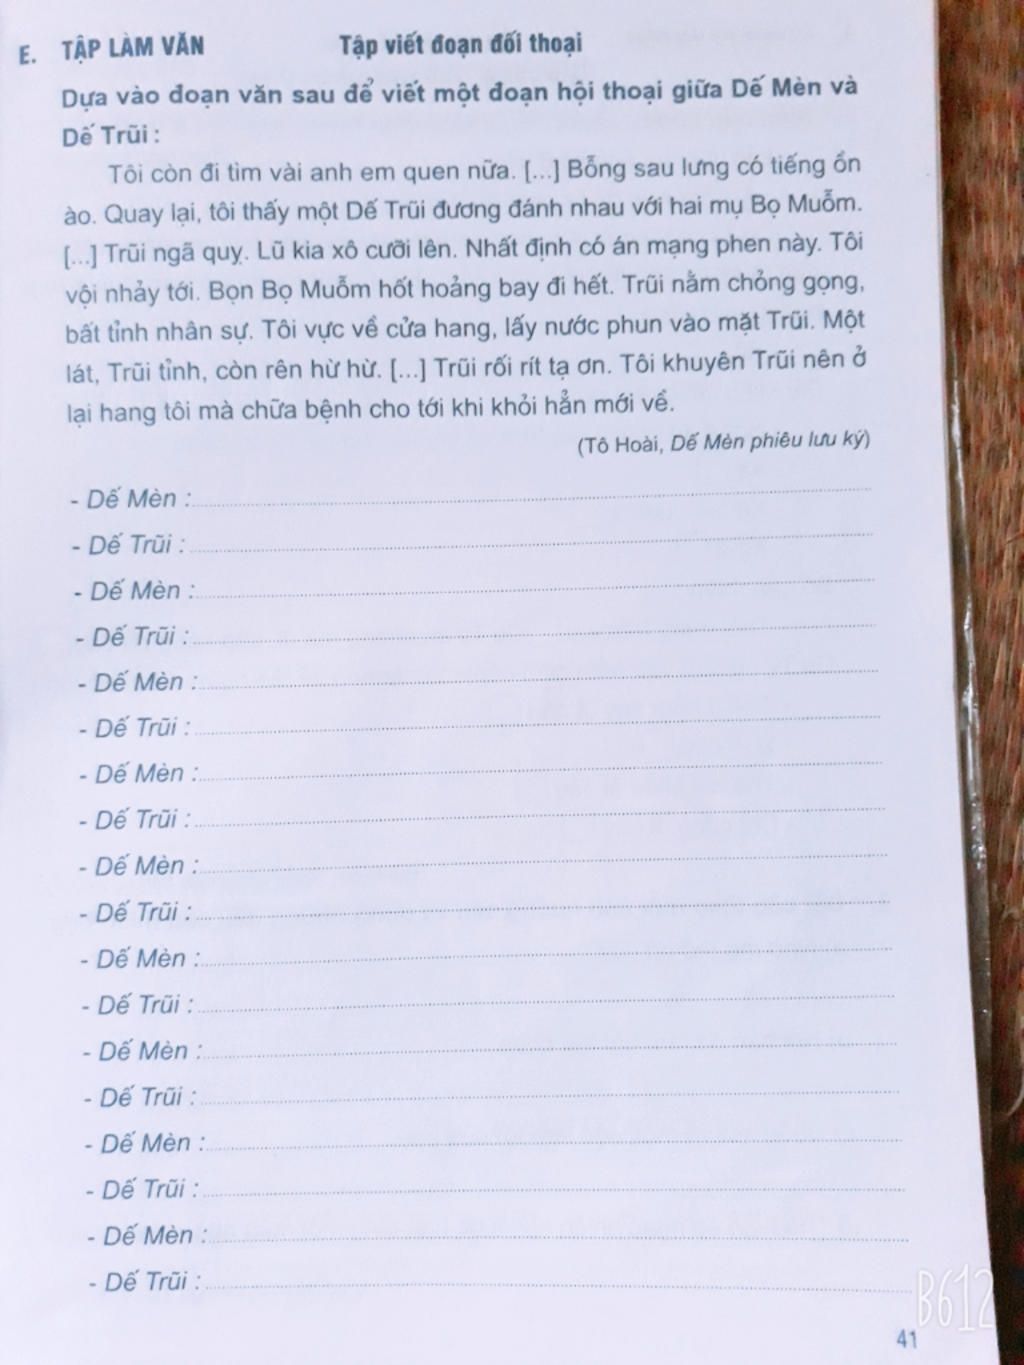 E. TẬP LÀM VĂN Tập viết đoạn đối thoại
Dựa vào đoạn văn sau để viết một đoạn hội thoại giữa Dế Mèn và
Dế Trũi :
Tôi còn đi tìm vài anh em quen nữa. [...] Bỗng sau lưng có tiếng ồn
ào. Quay lại, tôi thấy một Dế Trũi đương đánh nhau với hai mụ Bọ Muỗm.
[...] Trũi ngã quỵ. Lũ kia xô cưỡi lên. Nhất định có án mạng phen này. Tôi
vội nhảy tới. Bọn Bọ Muỗm hốt hoảng bay đi hết. Trũi nằm chỏng gọng,
bất tỉnh nhân sự. Tôi vực về cửa hang, lấy nước phun vào mặt Trũi. Một
lát, Trũi tỉnh, còn rên hừ hừ. [...] Trũi rối rít tạ ơn. Tôi khuyên Trũi nên ở
lại hang tôi mà chữa bệnh cho tới khi khỏi hẳn mới về.
(Tô Hoài, Dế Mèn phiêu lưu ký)
- Dế Mèn :
- Dế Trũi :
- Dế Mèn :
- Dế Trũi :
- Dế Mèn :
- Dế Trũi :
- Dế Mèn :
- Dế Trũi :
- Dế Mèn :
- Dế Trũi :
- Dế Mèn :
- Dế Trũi :
- Dế Mèn :
- Dế Trũi :
- Dế Mèn :
- Dế Trũi :
- Dế Mèn :
- Dế Trũi :
B612
41